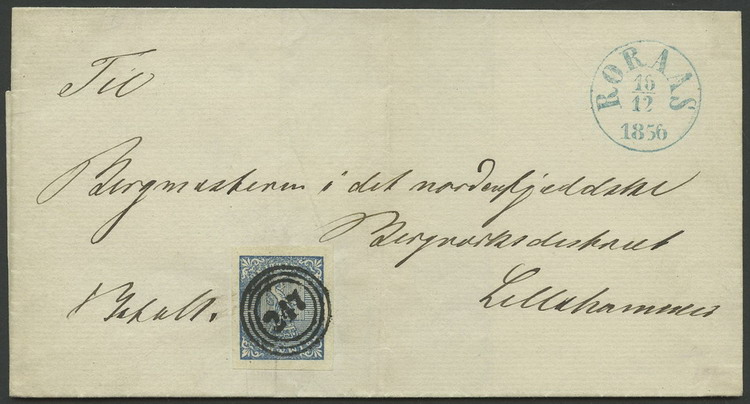 RORAAS
16
12
1856
Til
Bergmesteren i det nordenfjeldske
Bergværksdistrict
Betalt.
247
Lillehammer